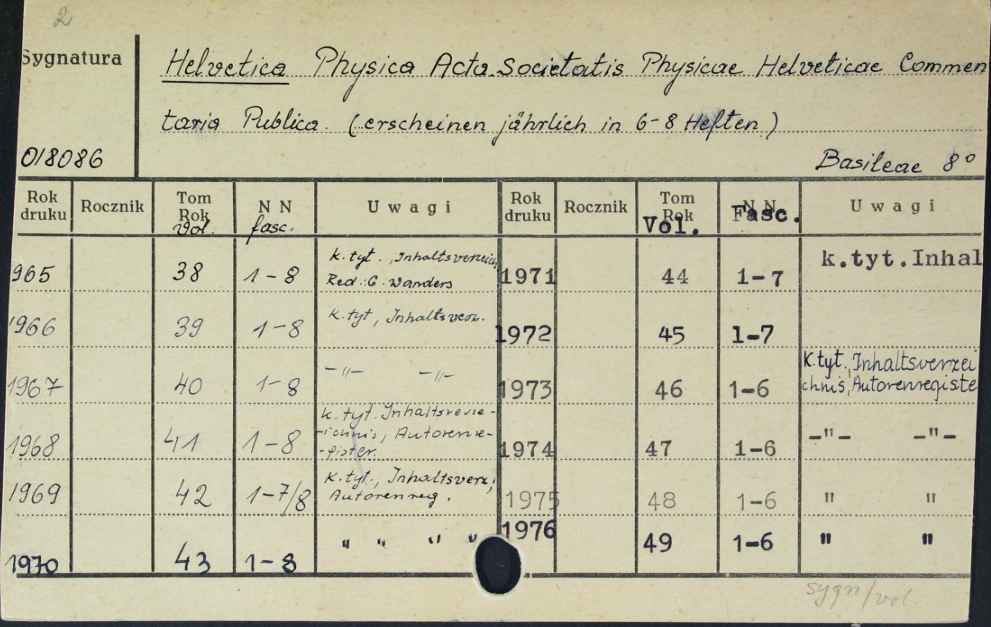 2
Sygnatura
Helvetica Physica Acta Societatis Physicae Helveticae Commen
taria Publica. (erscheinen jährlich in 6-8 Heften)
018086
Basileae 8°
Rok druku Rocznik Tom Rok Vol. N N fasc. Uwagi Rok druku Rocznik Tom Rok Vol. N N Fasc. Uwagi
965 38 1-8 k.tyt., Inhaltsverzeich, Red. G. Wanders 1971 44 1-7 k.tyt.Inhal
1966 39 1-8 k.tyt, Inhaltsverz. 1972 45 1-7
1967 40 1-8 -"- -"- 1973 46 1-6 K.tyt., Inhaltsverzei chnis, Autorenregiste
1968 41 1-8 k.tyt. Inhaltsverze- ichnis, Autorenre- gister. 1974 47 1-6 -"- -"-
1969 42 1-7/8 k.tyt., Inhaltsverz., Autorenreg. 1975 48 1-6 " "
1970 43 1-8 " " " " 1976 49 1-6 " "
sygn/vol.